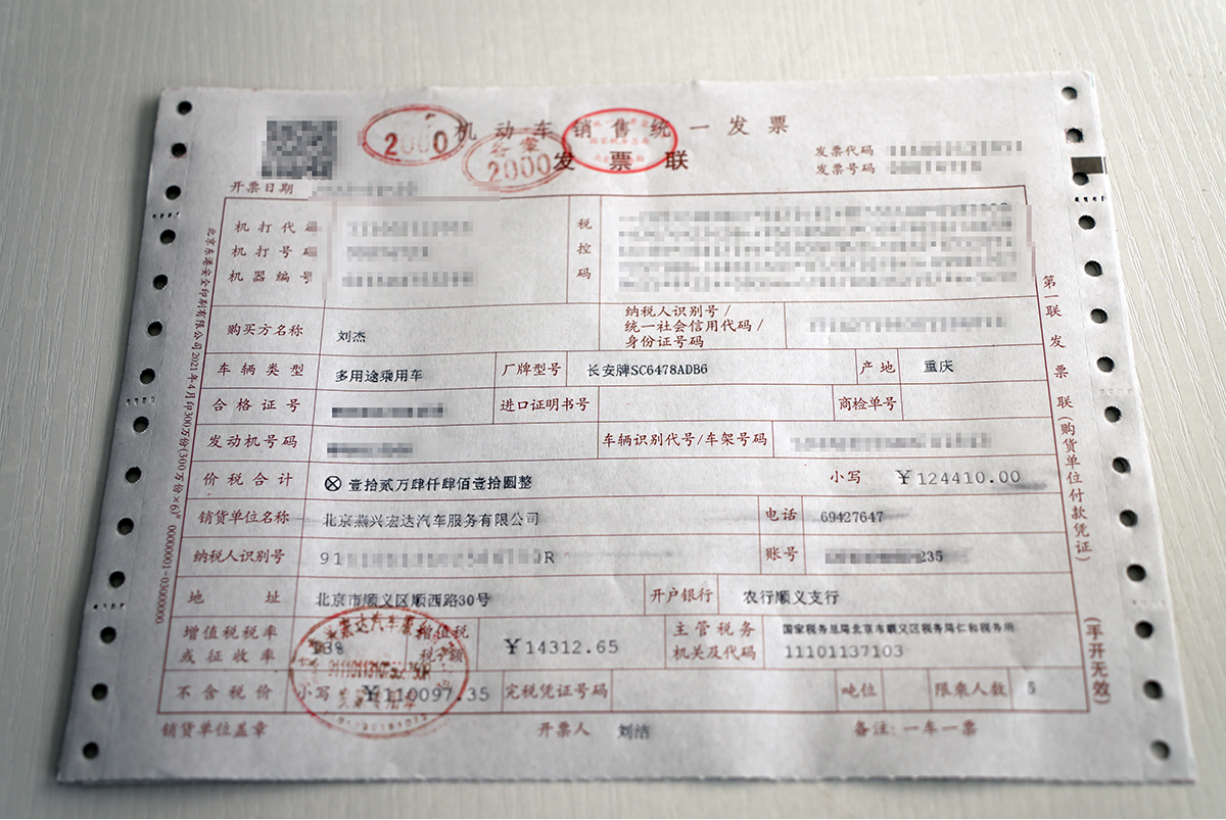 机动车销售统一发票
发票联
2000
2000
发票代码
发票号码
开票日期
机打代码
机打号码
机器编号
税控码
购买方名称 刘杰 纳税人识别号/
统一社会信用代码/
身份证号码
车辆类型 多用途乘用车 厂牌型号 长安牌SC6478ADB6 产地 重庆
合格证号 进口证明书号 商检单号
发动机号码 车辆识别代号/车架号码
价税合计 ⊗ 壹拾贰万肆仟肆佰壹拾圆整 小写 ￥124410.00
销货单位名称 北京燕兴宏达汽车服务有限公司 电话 69427647
纳税人识别号 91 R 账号 235
地址 北京市顺义区顺西路30号 开户银行 农行顺义支行
增值税税率
或征收率 增值税
税额 ￥14312.65 主管税务
机关及代码 国家税务总局北京市顺义区税务局仁和税务所
11101137103
不含税价 小写 ￥110097.35 完税凭证号码 吨位 限乘人数 5
销货单位盖章 开票人 刘洁 备注:一车一票
第一联 发票联(购货单位付款凭证)
(手开无效)